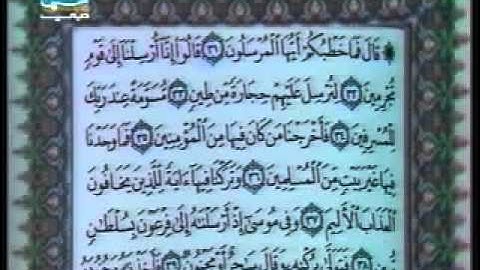 ۞ قَالَ فَمَا خَطْبُكُمْ أَيُّهَا الْمُرْسَلُونَ ٣١ قَالُوا إِنَّا أُرْسِلْنَا إِلَىٰ قَوْمٍ
مُجْرِمِينَ ٣٢ لِنُرْسِلَ عَلَيْهِمْ حِجَارَةً مِنْ طِينٍ ٣٣ مُسَوَّمَةً عِنْدَ رَبِّكَ
لِلْمُسْرِفِينَ ٣٤ فَأَخْرَجْنَا مَنْ كَانَ فِيهَا مِنَ الْمُؤْمِنِينَ ٣٥ فَمَا وَجَدْنَا
فِيهَا غَيْرَ بَيْتٍ مِنَ الْمُسْلِمِينَ ٣٦ وَتَرَكْنَا فِيهَا ءَايَةً لِلَّذِينَ يَخَافُونَ
الْعَذَابَ الْأَلِيمَ ٣٧ وَفِي مُوسَىٰ إِذْ أَرْسَلْنَاهُ إِلَىٰ فِرْعَوْنَ بِسُلْطَانٍ
مُبِينٍ ٣٨ فَتَوَلَّىٰ بِرُكْنِهِ وَقَالَ سَاحِرٌ أَوْ مَجْنُونٌ ٣٩ فَأَخَذْنَاهُ وَجُنُودَهُ